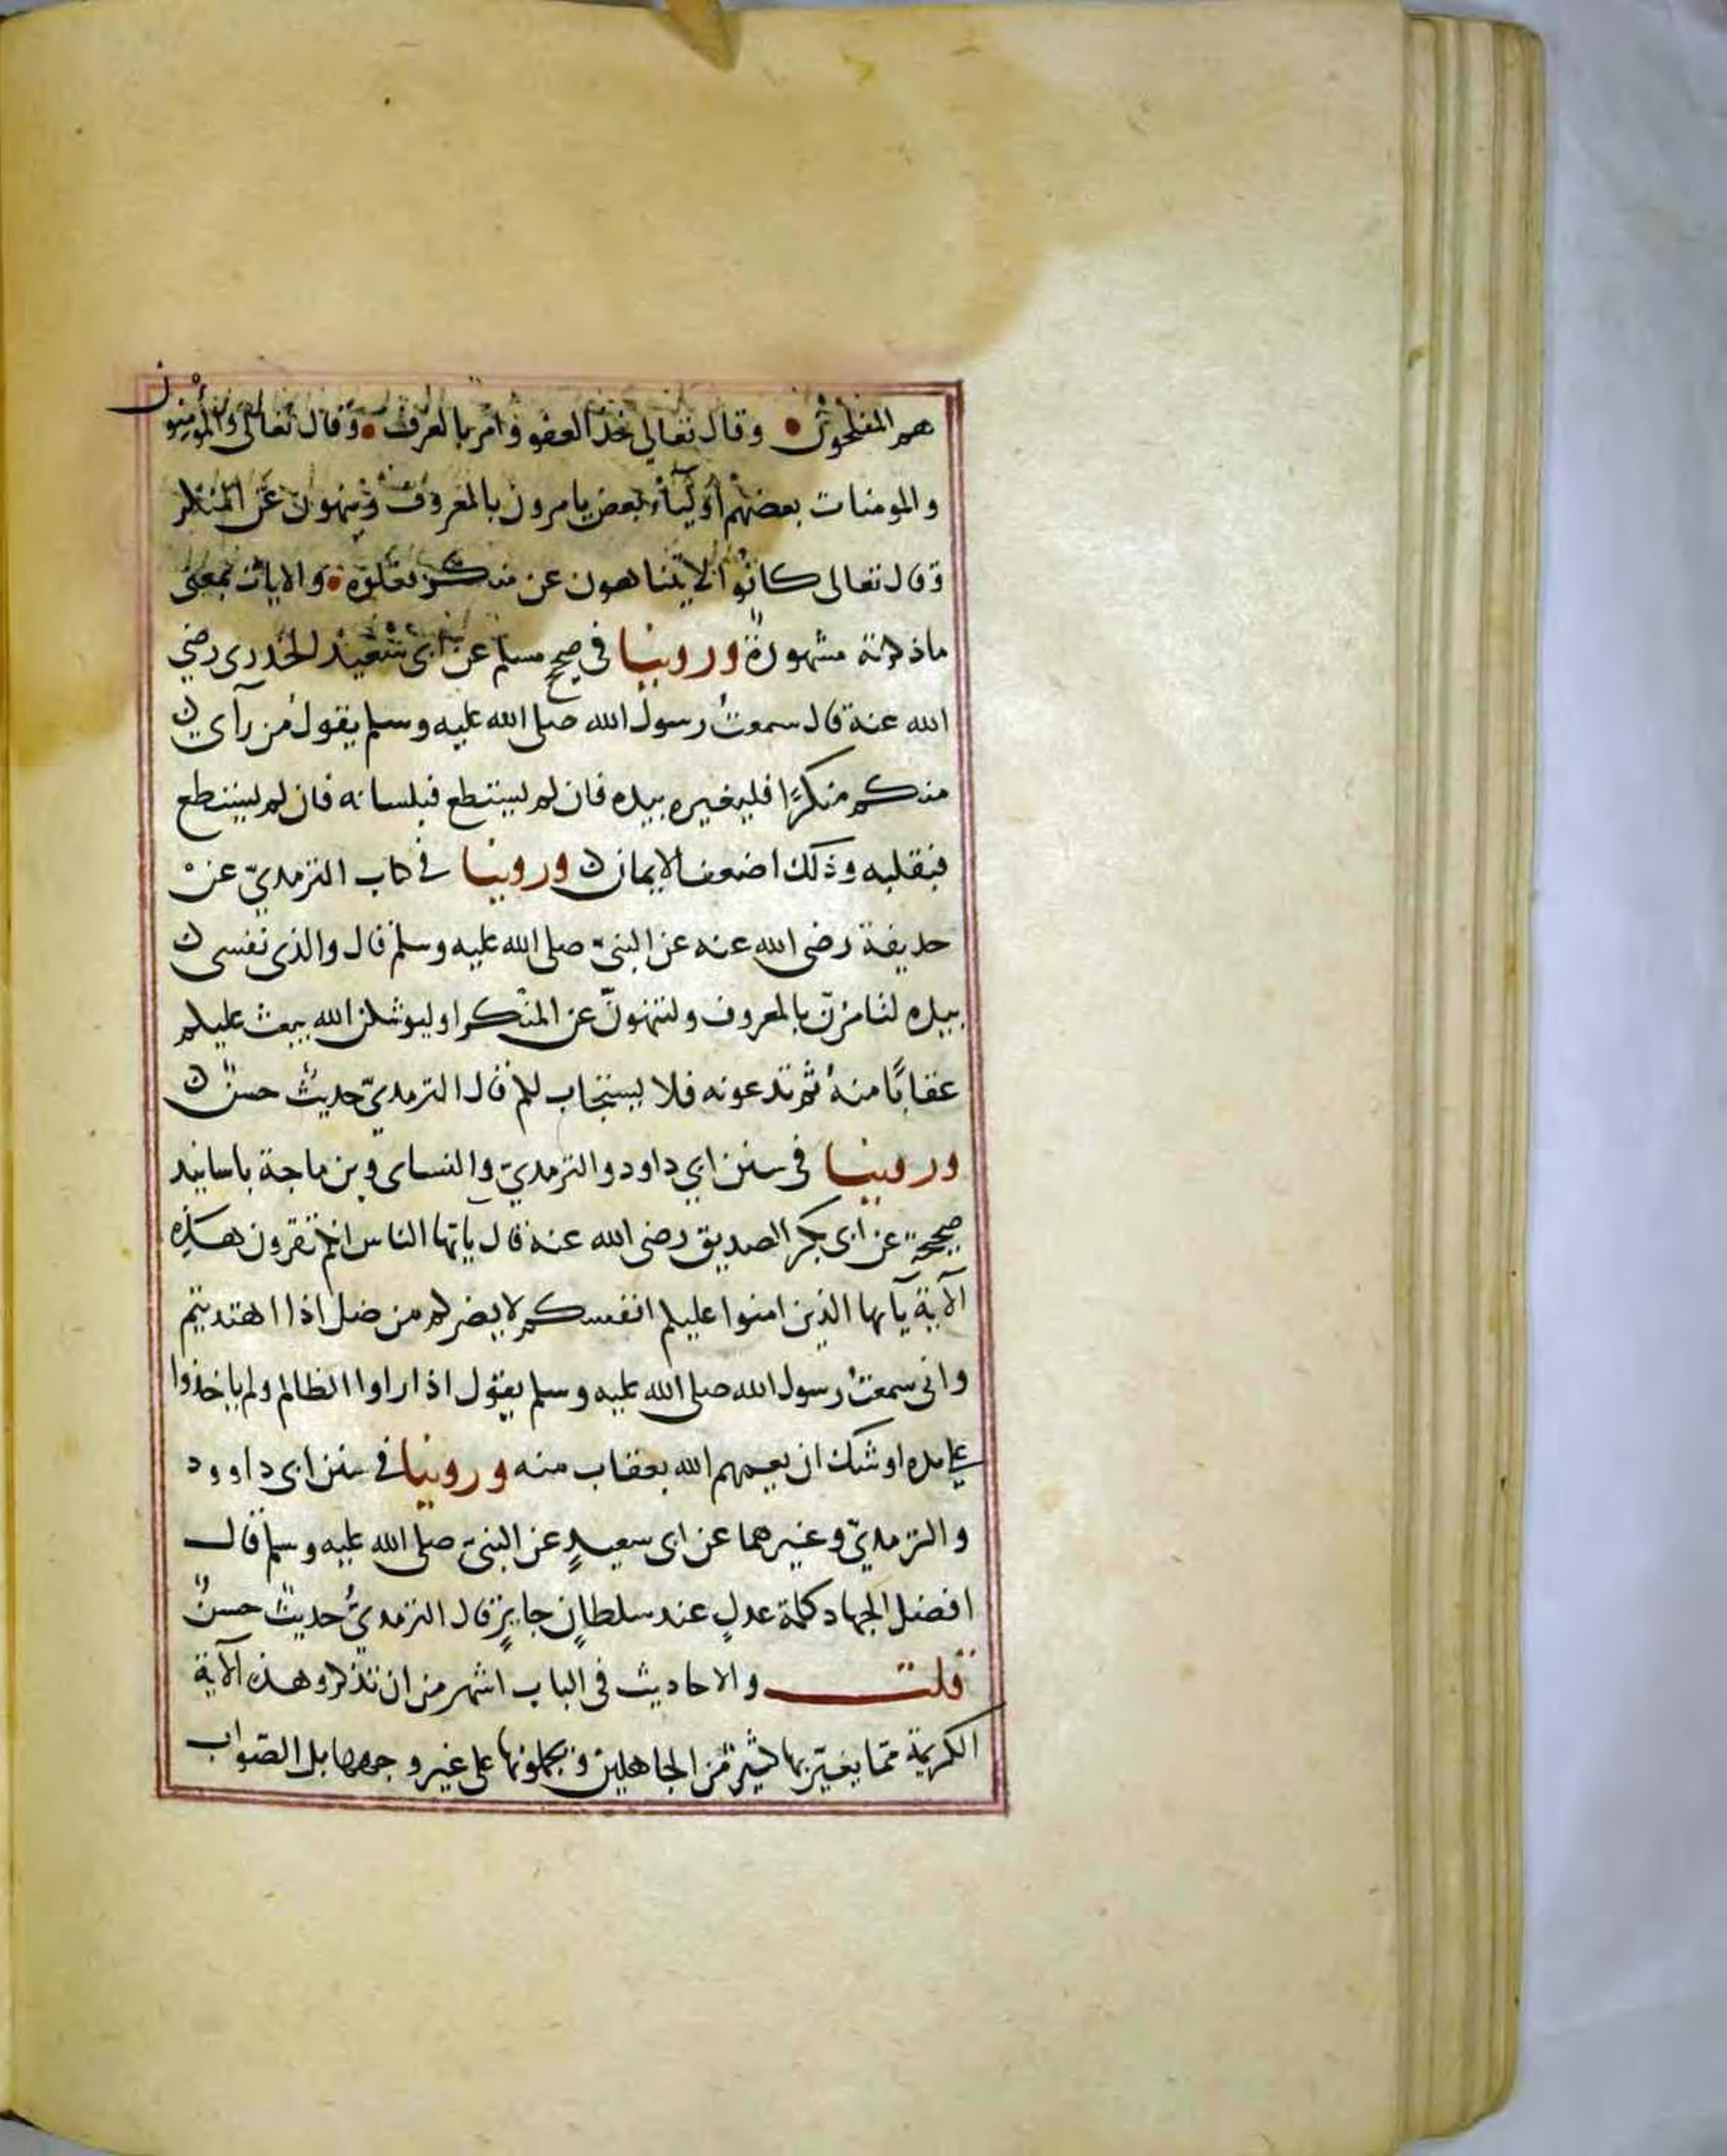 هم المفلحون وقال تعالى خذ العفو وامر بالعرف وقال تعالى والمؤمنون
والمومنات بعضهم أوليآء بعض يامرون بالمعروف وينهون عن المنكر
وقال تعالى كانوا لا يتناهون عن منكر فعلوه والايات بمعنى
ماذكرته مشهورة وروينا فى صحيح مسلم عن ابى سعيد الخدرى رضي
الله عنه قال سمعت رسول الله صلى الله عليه وسلم يقول من رآى
منكم منكرًا فليغيره بيده فان لم يستطع فبلسانه فان لم يستطع
فبقلبه وذلك اضعف الايمان وروينا في كتاب الترمذيّ عنْ
حذيفة رضى الله عنه عن النبيّ صلى الله عليه وسلم قال والذى نفسى
بيده لتامرنّ بالمعروف ولتنهونّ عن المنكر او ليوشكن الله يبعث عليكم
عقابًا منهُ ثم تدعونه فلا يستجاب لكم قال الترمذيّ حديثٌ حسنٌ
وروينا فى سنن ابي داود والترمذيّ والنساى وبن ماجة باسانيد
صحيحة عن ابى بكر الصديق رضى الله عنه قال يآيّها الناس انكم تقرون هذه
الآية يآيها الذين امنوا عليكم انفسكم لا يضركم من ضل اذا اهتديتم
وانى سمعتُ رسول الله صلى الله عليه وسلم يقول اذا راوا الظالم ولم ياخذوا
على يده اوشك ان يعمهم الله بعقاب منه وروينا فى سنن ابى داوود
والترمذيّ وغيرهما عن ابى سعيدٍ عن النبيّ صلى الله عليه وسلم قال
افضل الجهاد كلمة عدلٍ عند سلطانٍ جايرٍ قال الترمذيُّ حديثٌ حسنٌ
قلت والاحاديث فى الباب اشهر من ان تذكر وهذه الآية
الكريمة ممّا يغترّ بها كثيرٌ من الجاهلين ويحملونها على غير وجهها بل الصّواب